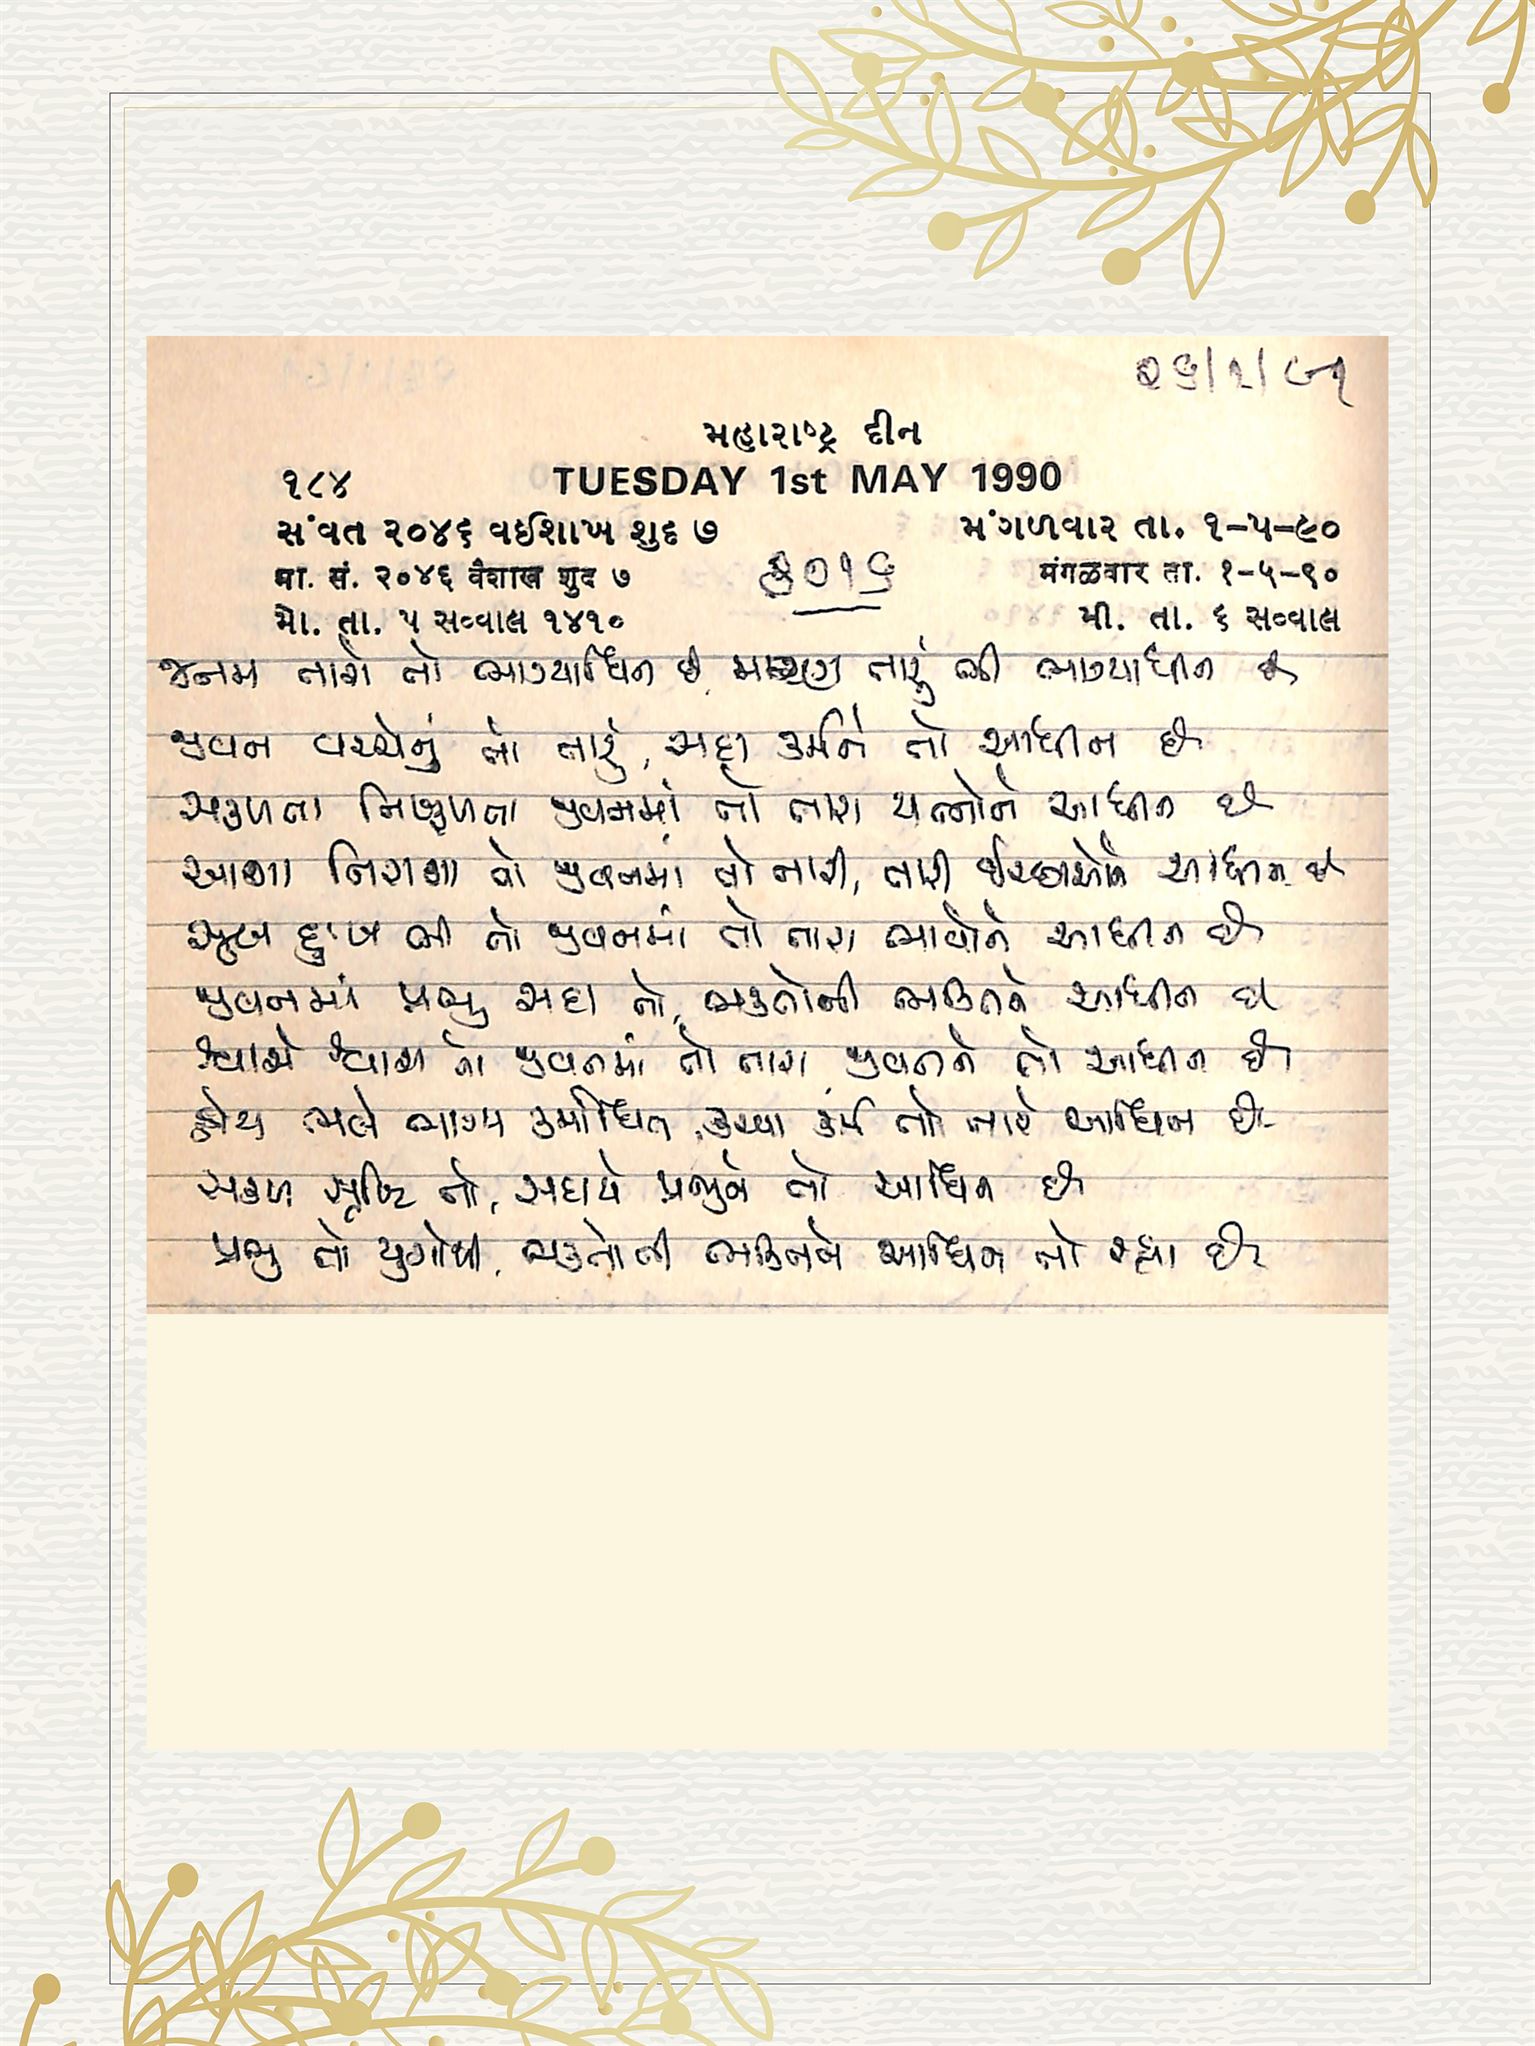 ૨૬/૧/૯૧
મહારાષ્ટ્ર દીન
૧૮૪ TUESDAY 1st MAY 1990
સંવત ૨૦૪૬ વઈશાખ શુદ ૭ મંગળવાર તા. ૧-૫-૯૦
मा. सं. २०४६ वैशाख शुद ७ मंगळवार ता. १-५-९०
મો. તા. ૫ સવ્વાલ ૧૪૧૦ મી. તા. ૬ સવ્વાલ
૩૦૧૬
જનમ તારો તો ભાગ્યાધિન છે, મરણ તારું ભી ભાગ્યાધીન છે
જીવન વચ્ચેનું તો તારું, સદા કર્મને તો આધીન છે
સફળતા નિષ્ફળતા જીવનમાં તો તારા યત્નોને આધીન છે
આશા નિરાશા તો જીવનમાં તો તારી, તારી ઈચ્છાઓને આધીન છે
સુખ દુઃખ ભી તો જીવનમાં તો તારા ભાવોને આધીન છે
જીવનમાં પ્રભુ સદા તો, ભક્તોની ભક્તિને આધીન છે
શ્વાસે શ્વાસ તો જીવનમાં તો તારા જીવનને તો આધીન છે
હોય ભલે ભાગ્ય કર્માધિન, કરવા કર્મ તો તારે આધિન છે
સકળ સૃષ્ટિ તો, સદાયે પ્રભુને તો આધિન છે
પ્રભુ તો યુગોથી, ભક્તોની ભક્તિને આધિન તો રહ્યા છે